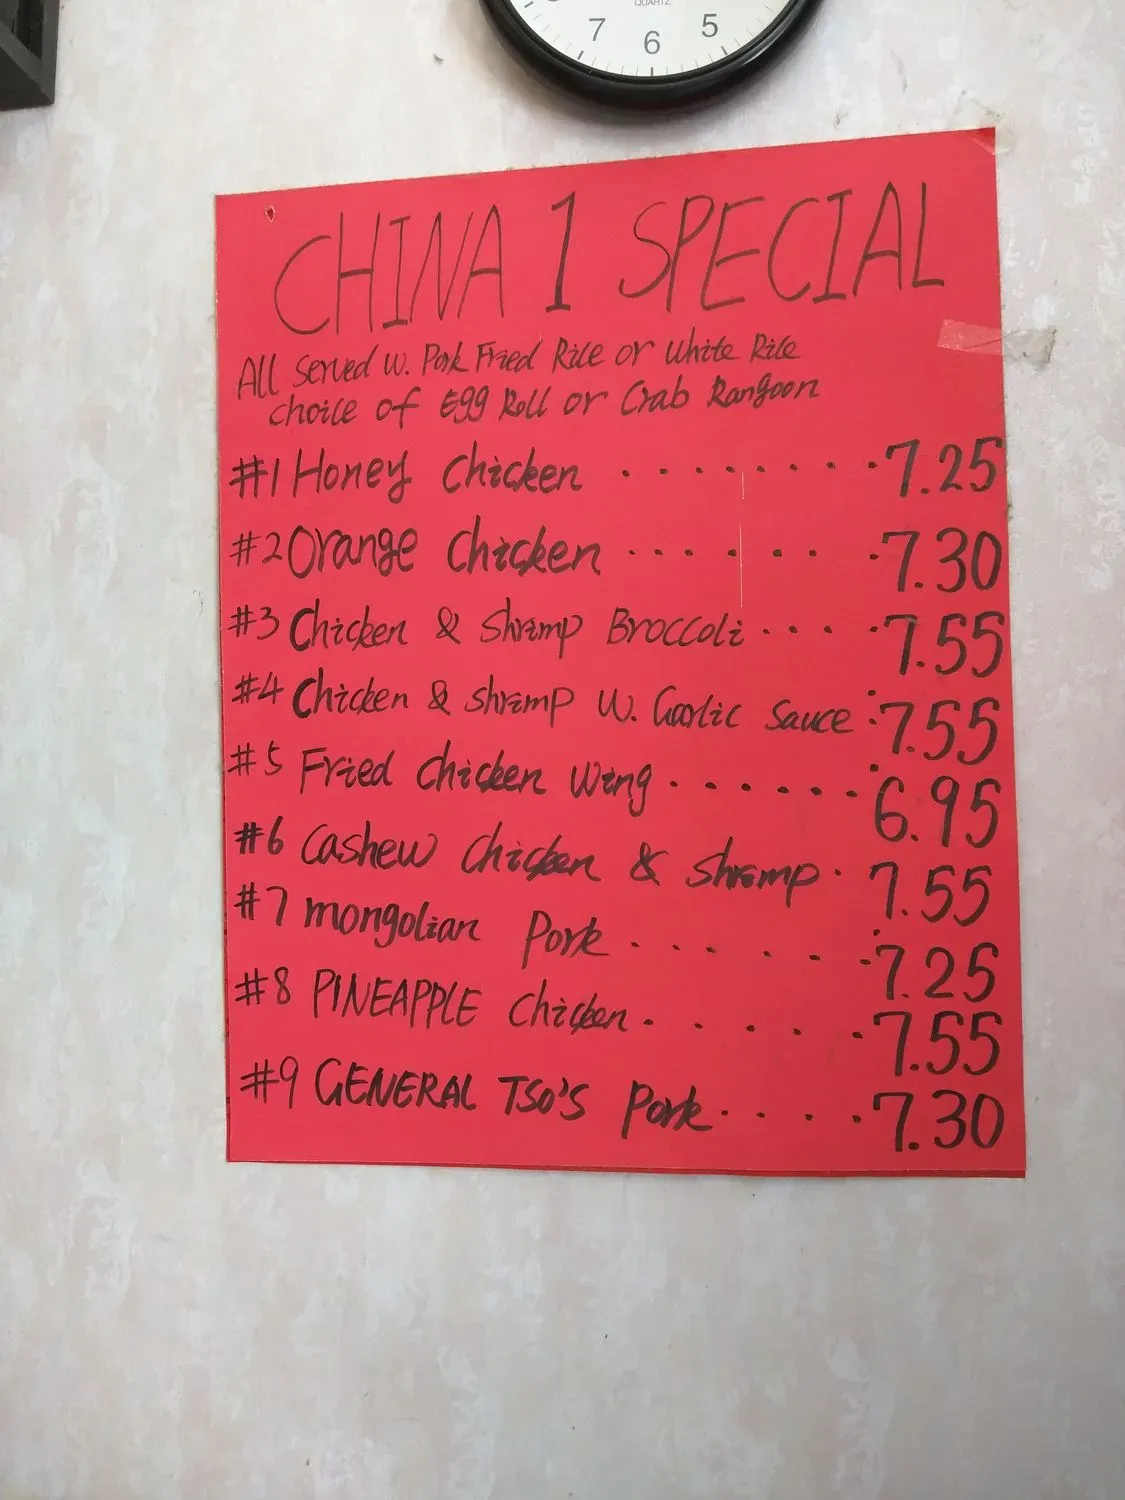 QUARTZ
7 6 5
CHINA 1 SPECIAL
All Served w. Pork Fried Rice or White Rice
choice of Egg Roll or Crab Rangoon
#1 Honey Chicken . . . . . . . . 7.25
#2 Orange Chicken . . . . . . . 7.30
#3 Chicken & Shrimp Broccoli . . . . . 7.55
#4 Chicken & Shrimp W. Garlic Sauce : 7.55
#5 Fried Chicken Wing . . . . . . . 6.95
#6 Cashew Chicken & Shrimp . 7.55
#7 mongolian Pork . . . . . . . 7.25
#8 PINEAPPLE Chicken . . . . . 7.55
#9 GENERAL TSO'S Pork . . . . . 7.30